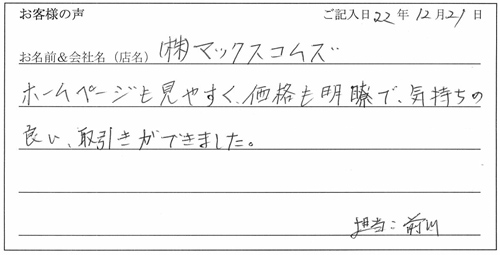 お客様の声 ご記入日 22 年 12 月 21 日
お名前&会社名（店名） (株)マックスコムズ
ホームページも見やすく、価格も明瞭で、気持ちの
良い、取引きができました。
担当：前川